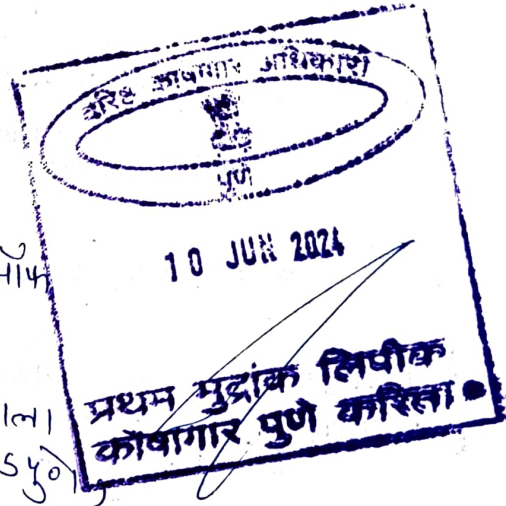 वरिष्ठ कोषागार अधिकारी
पुणे
10 JUN 2024
प्रथम मुद्रांक लिपीक
कोषागार पुणे करिता